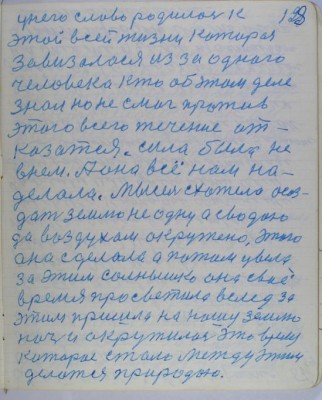 128
у него слово родилося к
этой всей жизни которая
завизалася из за одного
человека кто об этом деле
знал но не смог против
этого всего течение от-
казатся. сила была не
в нем. А она всё нам на-
делала. Мысля схотела соз-
дать землю не одну а с водою
да воздухам окружено, этого
она сделала а потом увела
за этим солнышко она своё
время просветила вслед за
этим пришла на нашу землю
ноч и окружилой это время
которое стало между этим
делотся природою.